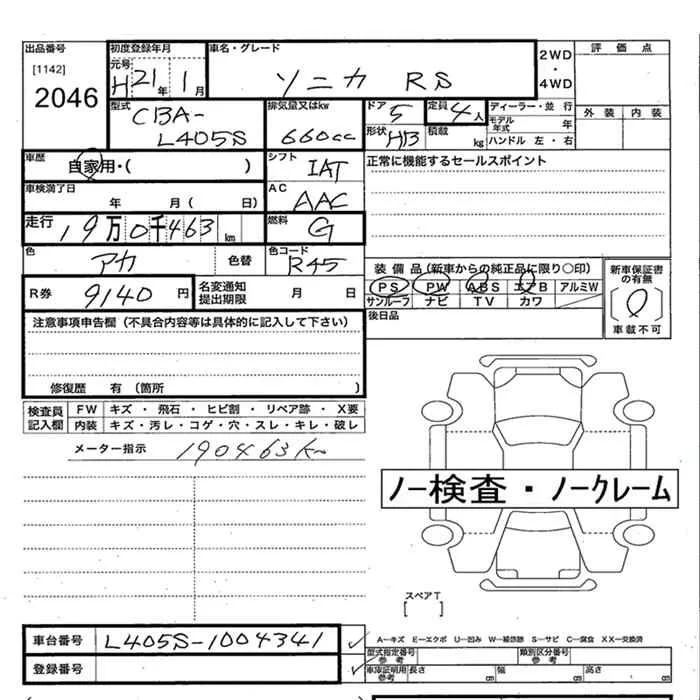 出品番号 初度登録年月 車名・グレード 2WD・4WD 評価点
[1142] 元号
2046 H 21年 1月 ソニカ RS
外装 内装
型式 排気量又はkw ドア 5 定員 4人 ディーラー・並行
CBA- モデル年式 年
L405S 660cc 形状 HB 積載 kg ハンドル 左・右
車歴 自家用・( ) シフト IAT 正常に機能するセールスポイント
車検満了日 AC AAC
年 月( 日)
走行 19万0千463km 燃料 G
色 アカ 色替 色コード R45
装備品(新車からの純正品に限り○印) 新車保証書の有無
R券 9140円 名変通知提出期限 月 日
PS PW ABS エアB アルミW
サンルーフ ナビ TV カワ
[0]
車載不可
注意事項申告欄(不具合内容等は具体的に記入して下さい) 後日品
修復歴 有(箇所 )
検査員記入欄 FW キズ・飛石・ヒビ割・リペア跡・X要
内装 キズ・汚レ・コゲ・穴・スレ・キレ・破レ
メーター指示 190463km
ノー検査・ノークレーム
スペアT
[ ]
車台番号 L405S-1004341
A―キズ E―エクボ U―凹み W―補修跡 S―サビ C―腐食 XX―交換済
型式指定番号 参考 類別区分番号 参考
登録番号 車庫証明用 参考 長さ cm 幅 cm 高さ cm